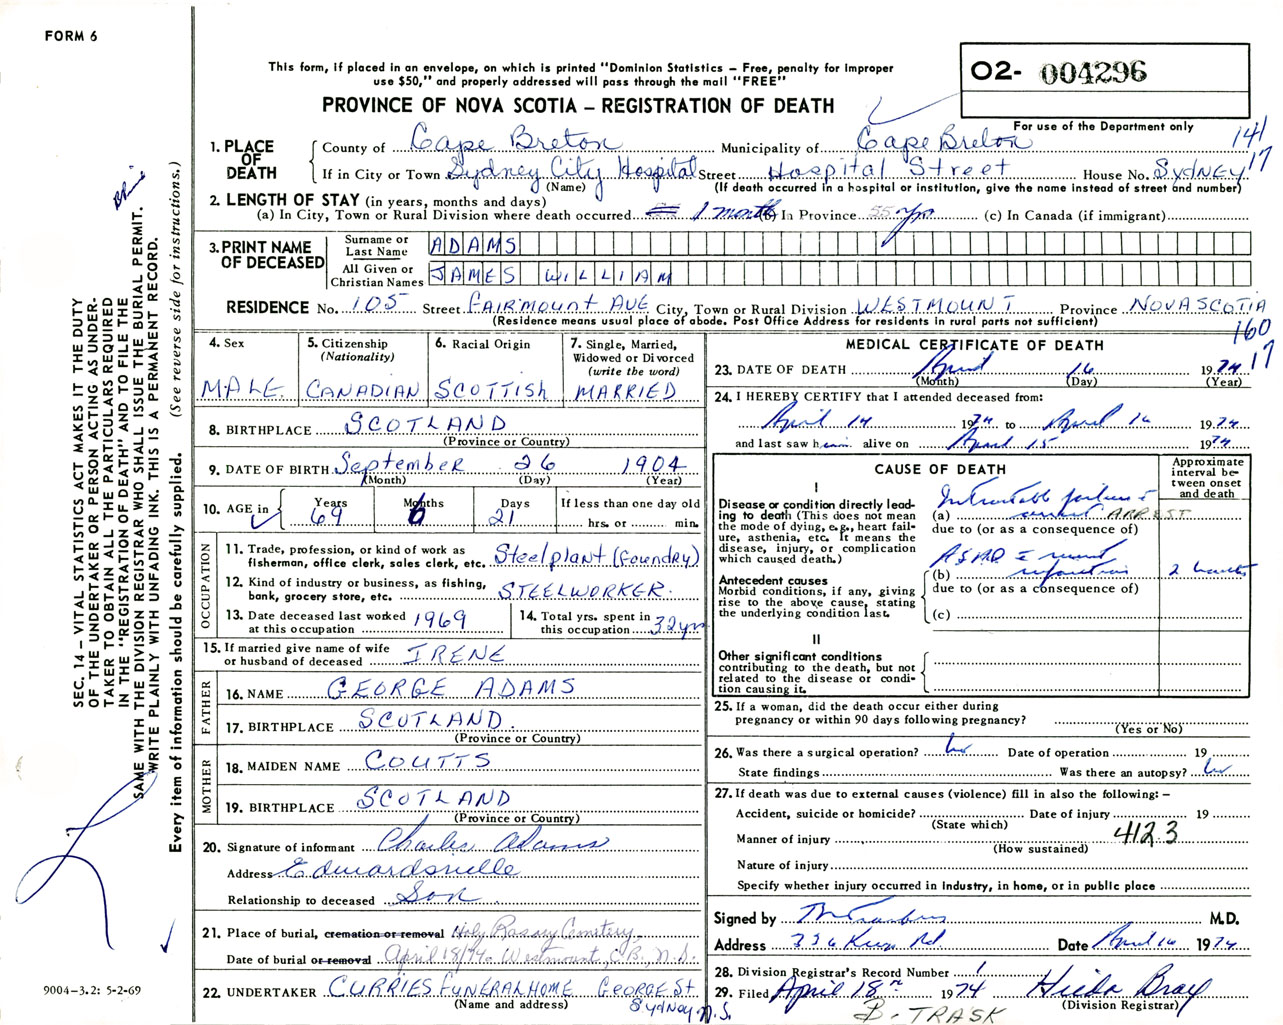 FORM 6
This form, if placed in an envelope, on which is printed "Dominion Statistics – Free, penalty for improper
use $50," and properly addressed will pass through the mail "FREE"
O2- 004296
PROVINCE OF NOVA SCOTIA – REGISTRATION OF DEATH
For use of the Department only
141
17
1. PLACE OF DEATH
County of Cape Breton Municipality of Cape Breton
If in City or Town Sydney City Hospital Street Hospital Street House No. SYDNEY
(Name) (If death occurred in a hospital or institution, give the name instead of street and number)
2. LENGTH OF STAY (in years, months and days)
(a) In City, Town or Rural Division where death occurred 1 month (b) In Province 55 yrs (c) In Canada (if immigrant)
3. PRINT NAME OF DECEASED
Surname or Last Name ADAMS
All Given or Christian Names JAMES WILLIAM
RESIDENCE No. 105 Street FAIRMOUNT AVE City, Town or Rural Division WESTMOUNT Province NOVA SCOTIA
(Residence means usual place of abode. Post Office Address for residents in rural parts not sufficient)
160
17
4. Sex MALE
5. Citizenship (Nationality) CANADIAN
6. Racial Origin SCOTTISH
7. Single, Married, Widowed or Divorced (write the word) MARRIED
8. BIRTHPLACE SCOTLAND
(Province or Country)
9. DATE OF BIRTH September 26 1904
(Month) (Day) (Year)
10. AGE in Years 69 Months 6 Days 21 If less than one day old hrs. or min.
OCCUPATION
11. Trade, profession, or kind of work as fisherman, office clerk, sales clerk, etc. Steelplant (Foundry)
12. Kind of industry or business, as fishing, bank, grocery store, etc. STEELWORKER
13. Date deceased last worked at this occupation 1969
14. Total yrs. spent in this occupation 32 yrs
15. If married give name of wife or husband of deceased IRENE
FATHER
16. NAME GEORGE ADAMS
17. BIRTHPLACE SCOTLAND
(Province or Country)
MOTHER
18. MAIDEN NAME COUTTS
19. BIRTHPLACE SCOTLAND
(Province or Country)
20. Signature of informant Charles Adams
Address Edwardsville
Relationship to deceased Son
21. Place of burial, cremation or removal Holy Rosary Cemetery,
Date of burial or removal April 18/74 Westmount, C.B., N.S.
22. UNDERTAKER CURRIES FUNERAL HOME GEORGE ST
(Name and address) SYDNEY N.S.
MEDICAL CERTIFICATE OF DEATH
23. DATE OF DEATH April 16 1974
(Month) (Day) (Year)
24. I HEREBY CERTIFY that I attended deceased from:
April 14 1974 to April 16 1974
and last saw him alive on April 15 1974
CAUSE OF DEATH
Approximate interval between onset and death
I
Disease or condition directly leading to death (This does not mean the mode of dying, e.g., heart failure, asthenia, etc. It means the disease, injury, or complication which caused death.)
(a) Intractable failure + ARREST
due to (or as a consequence of)
Antecedent causes
Morbid conditions, if any, giving rise to the above cause, stating the underlying condition last.
(b) ASHD recent infarction 2 months
due to (or as a consequence of)
(c)
II
Other significant conditions
contributing to the death, but not related to the disease or condition causing it.
25. If a woman, did the death occur either during pregnancy or within 90 days following pregnancy?
(Yes or No)
26. Was there a surgical operation? no Date of operation 19
State findings Was there an autopsy? no
27. If death was due to external causes (violence) fill in also the following: –
Accident, suicide or homicide? Date of injury 19
(State which)
Manner of injury 4123
(How sustained)
Nature of injury
Specify whether injury occurred in industry, in home, or in public place
Signed by M.D.
Address 336 Kings Rd. Date April 16 1974
28. Division Registrar's Record Number 1
29. Filed April 18th 1974 Hilda Bray
(Division Registrar)
B. TRASK
SEC. 14 – VITAL STATISTICS ACT MAKES IT THE DUTY
OF THE UNDERTAKER OR PERSON ACTING AS UNDER-
TAKER TO OBTAIN ALL THE PARTICULARS REQUIRED
IN THE "REGISTRATION OF DEATH" AND TO FILE THE
SAME WITH THE DIVISION REGISTRAR WHO SHALL ISSUE THE BURIAL PERMIT.
WRITE PLAINLY WITH UNFADING INK. THIS IS A PERMANENT RECORD.
Every item of information should be carefully supplied. (See reverse side for instructions.)
9004-3.2: 5-2-69